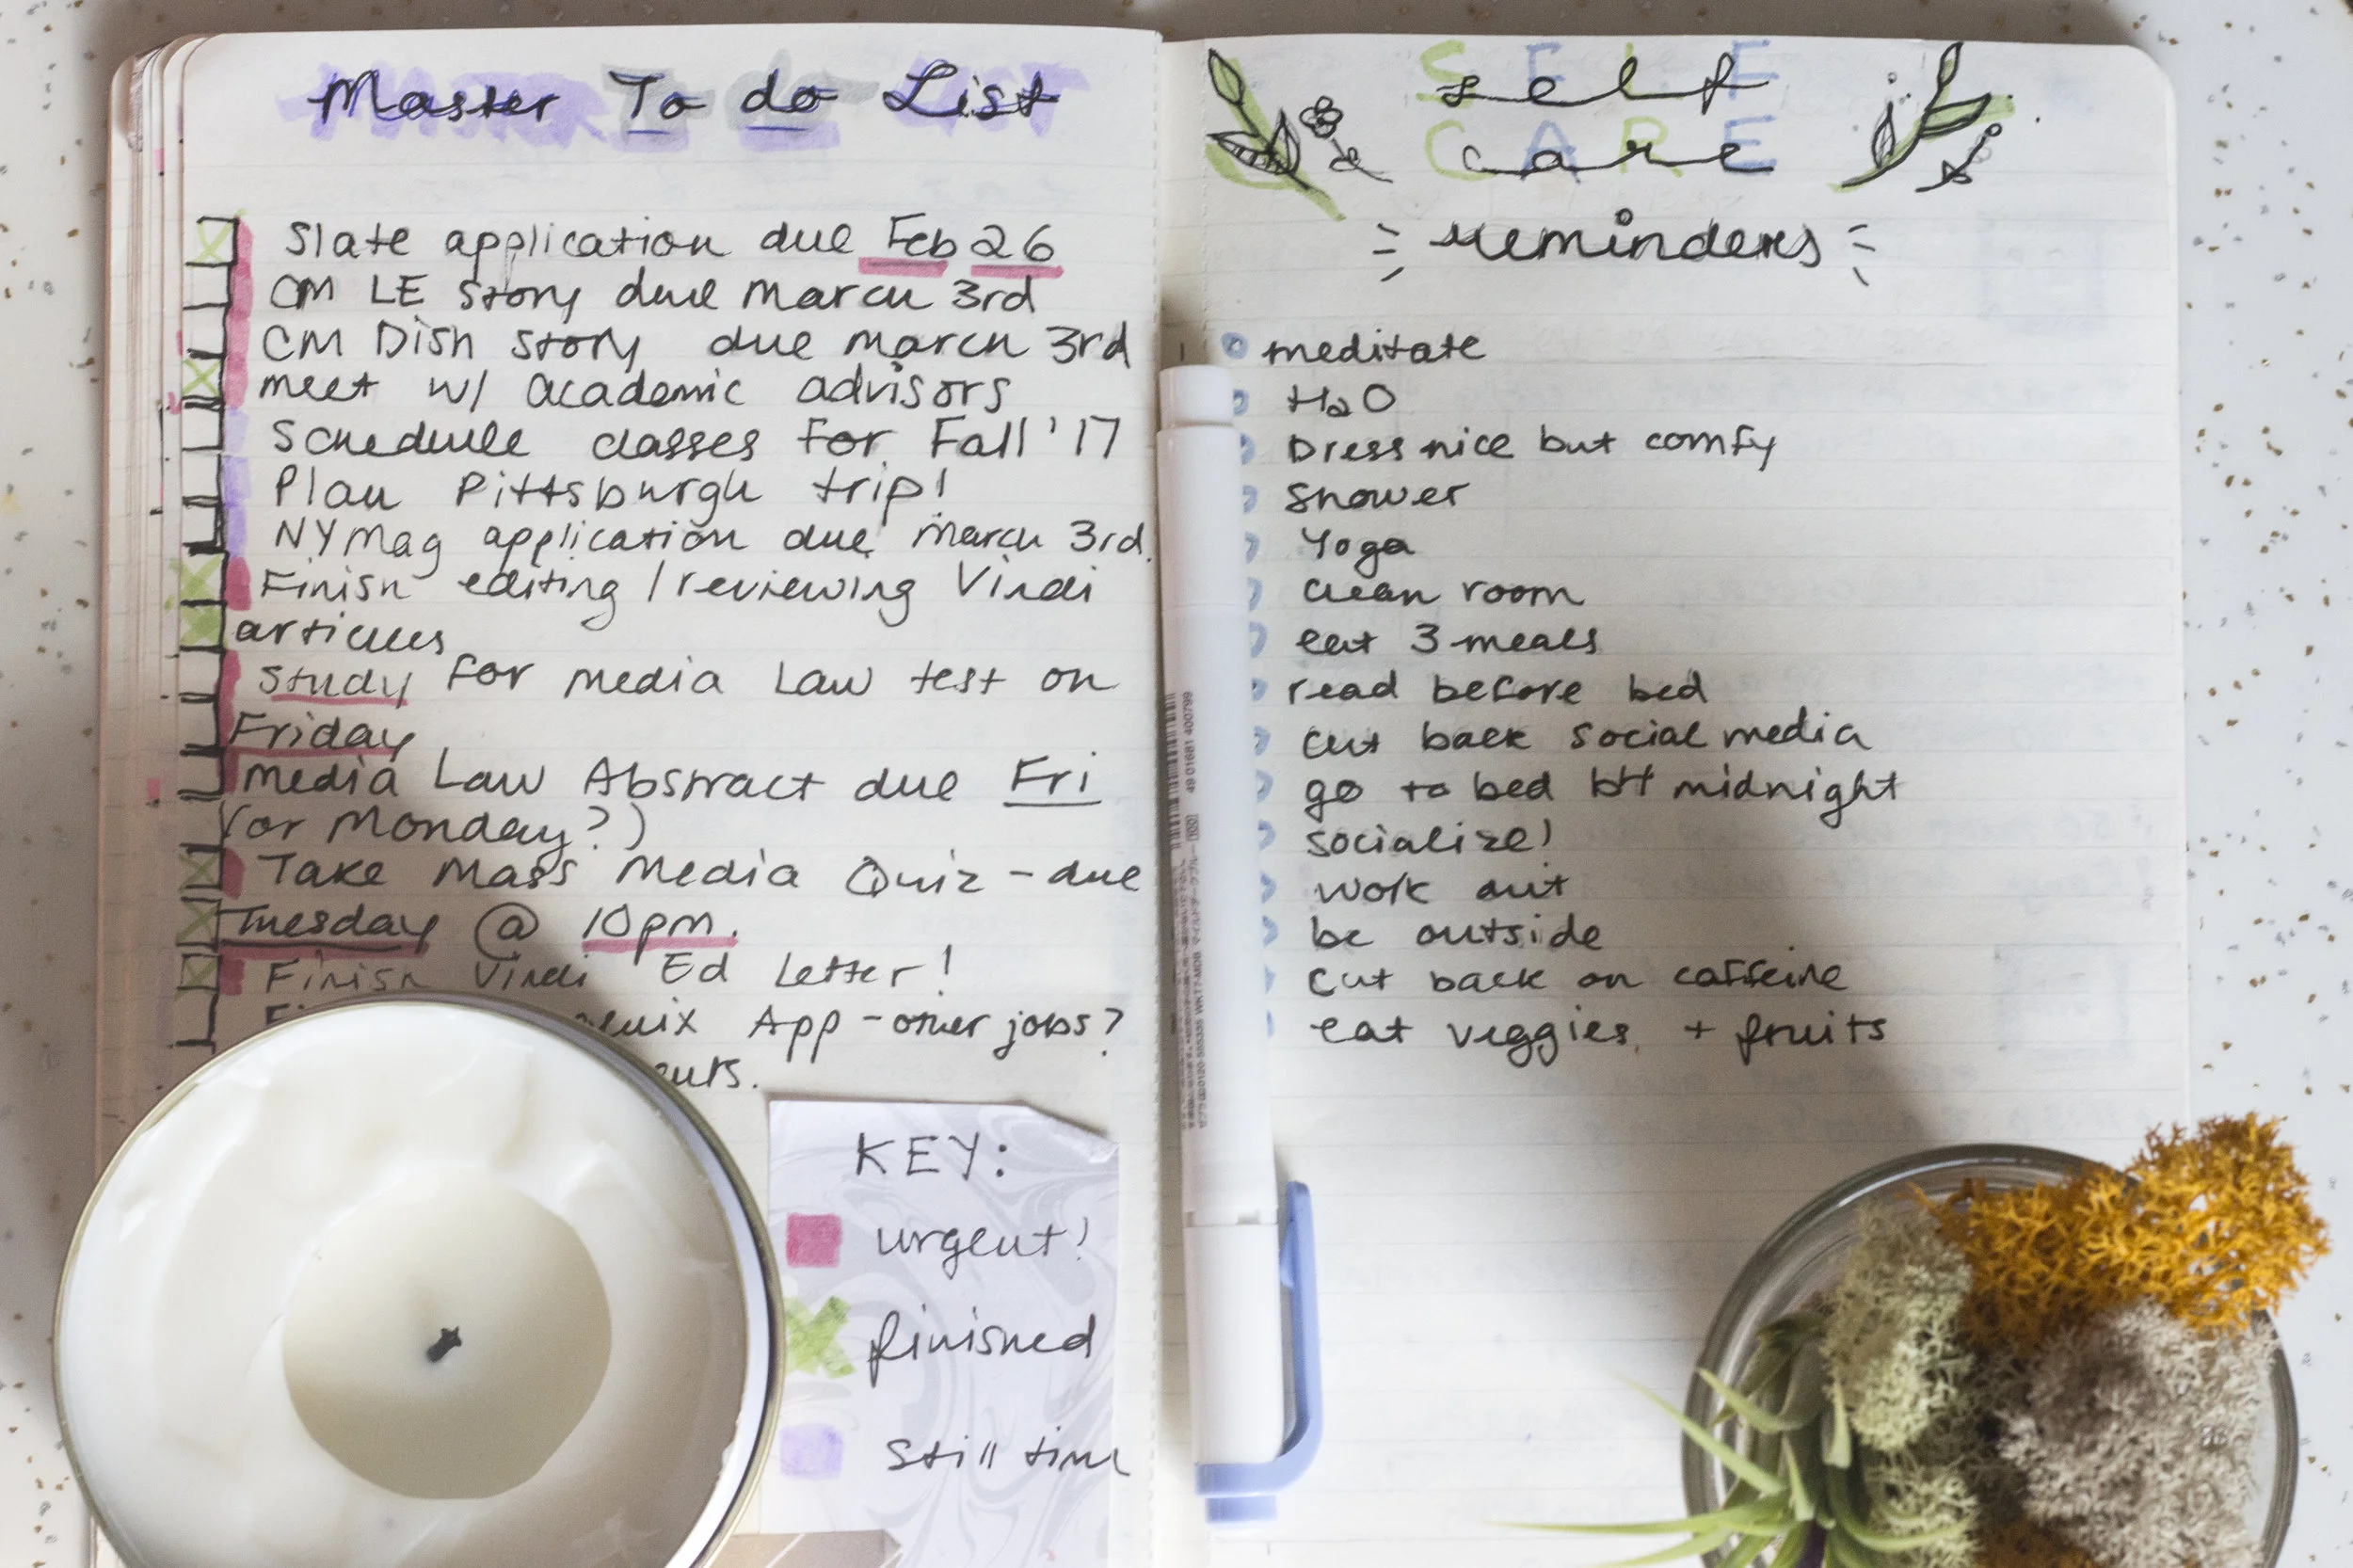 Master To do List
Slate application due Feb 26
CM LE story due March 3rd
CM Dish story due march 3rd
meet w/ academic advisors
Schedule classes for Fall '17
Plan Pittsburgh trip!
NYMag application due March 3rd.
Finish editing / reviewing Virdi
articles
Study for media Law test on
Friday
media Law Abstract due Fri
(or Monday?)
Take Mass Media Quiz - due
Tuesday @ 10pm.
Finish Virdi Ed Letter!
App - other jobs?
KEY:
urgent!
finished
Still time
SELF
self
CARE
care
reminders
meditate
H2O
Dress nice but comfy
Shower
Yoga
clean room
eat 3 meals
read before bed
cut back social media
go to bed b4 midnight
socialize!
work out
be outside
cut back on caffeine
eat veggies + fruits